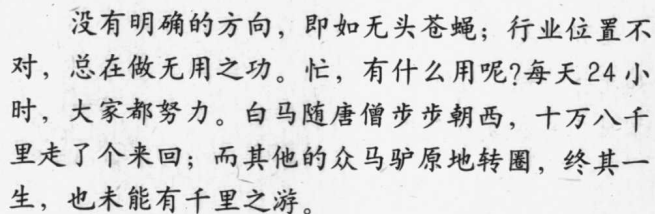 没有明确的方向，即如无头苍蝇；行业位置不
对，总在做无用之功。忙，有什么用呢?每天24小
时，大家都努力。白马随唐僧步步朝西，十万八千
里走了个来回；而其他的众马驴原地转圈，终其一
生，也未能有千里之游。